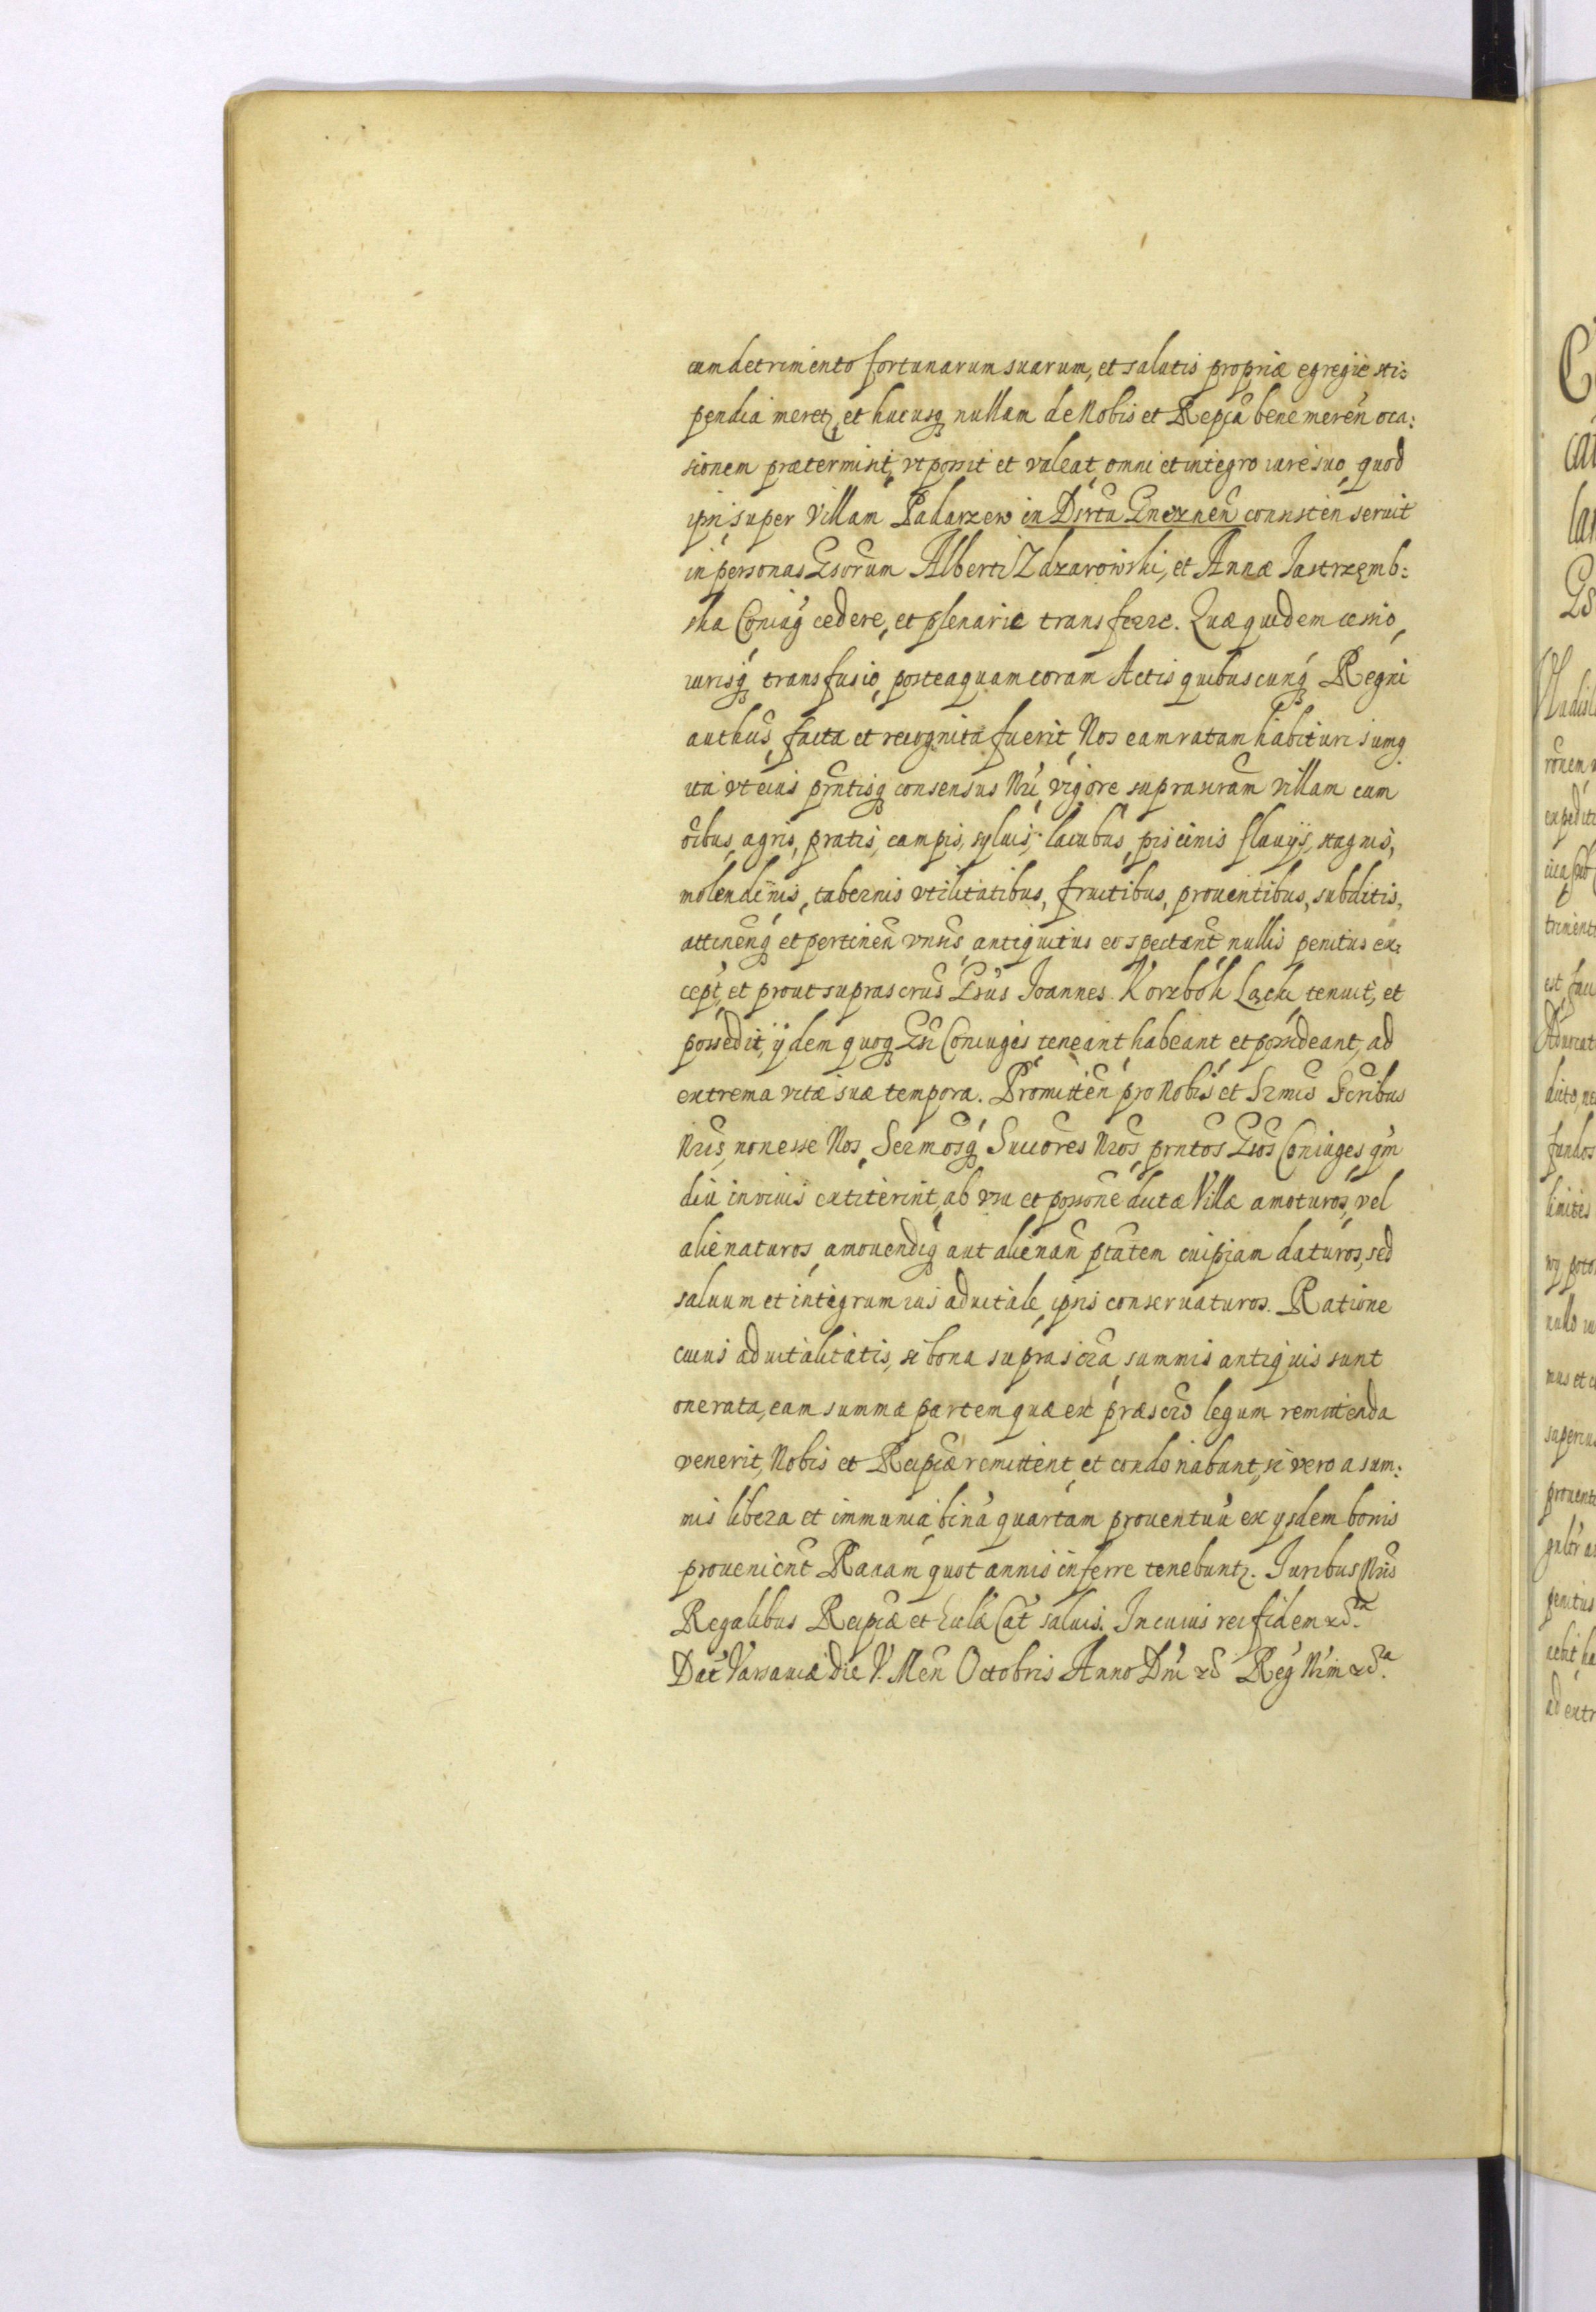 cum detrimento fortunarum suarum, et salutis propriæ egregiè sti:
pendia meret, et hucusq nullam de Nobis et Repca bene meren oca:
sionem prætermisit, vt possit et valeat omni et integro iure suo, quod
ipsi super Villam Padarzew in Dsrtu Gneznen consisten seruit
in personas Gsorum Alberti Zdzarowski, et Annæ Jastrzęmb:
ska Coniug cedere, et plenarie transferre. Quæ quidem cessio,
iurisq transfusio, posteaquam coram Actis quibuscunq Regni
authcis, facta et recognita fuerit, Nos eam ratam habituri sumq
ita vt eius prntisq consensus Nri, vigore suprascram villam cum
oibus, agris, pratis, campis, syluis, lacubus, piscinis fluuijs, stagnis,
molendinis, tabernis vtilitatibus, fructibus, prouentibus, subditis,
attinenq et pertinen vnsis, antiquitus eo spectant, nullis penitus ex:
cept, et prout suprascrus Gsus Joannes Korzbok Lącki tenuit, et
possedit, ijdem quoq Gsi Coniuges teneant habeant et possideant, ad
extrema vitæ suæ tempora. Promitten pro Nobis et Srmis Scribus
Nris, non esse Nos, Sermosq Succores Nros, prntos Gsos Coniuges qm
diu in viuis extiterint, ab vsu et possone dictæ Villæ amoturos, vel
alienaturos, amouendiq aut alienan ptatem cuipiam daturos, sed
saluum et integrum ius aduitale, ipsis conseruaturos. Ratione
cuius aduitalitatis, si bona suprascra, summis antiquis sunt
onerata, eam summæ partem quæ ex præscro legum remittenda
venerit, Nobis et Reipcæ remittent, et condonabunt, si vero a sum:
mis libera et immunia, bina quartam prouentuu ex ysdem bonis
prouenient Rauam quotannis inferre tenebunt. Juribus Nris
Regalibus Reipcæ et Eccla Cat saluis. In cuius rei fidem &c.
Dat Varsauiæ die V. Men Octobris Anno Dni &c Reg Nrm &c.